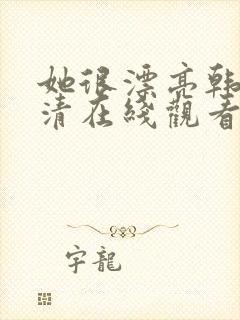 她很漂亮韩
清在线觀看
字龍